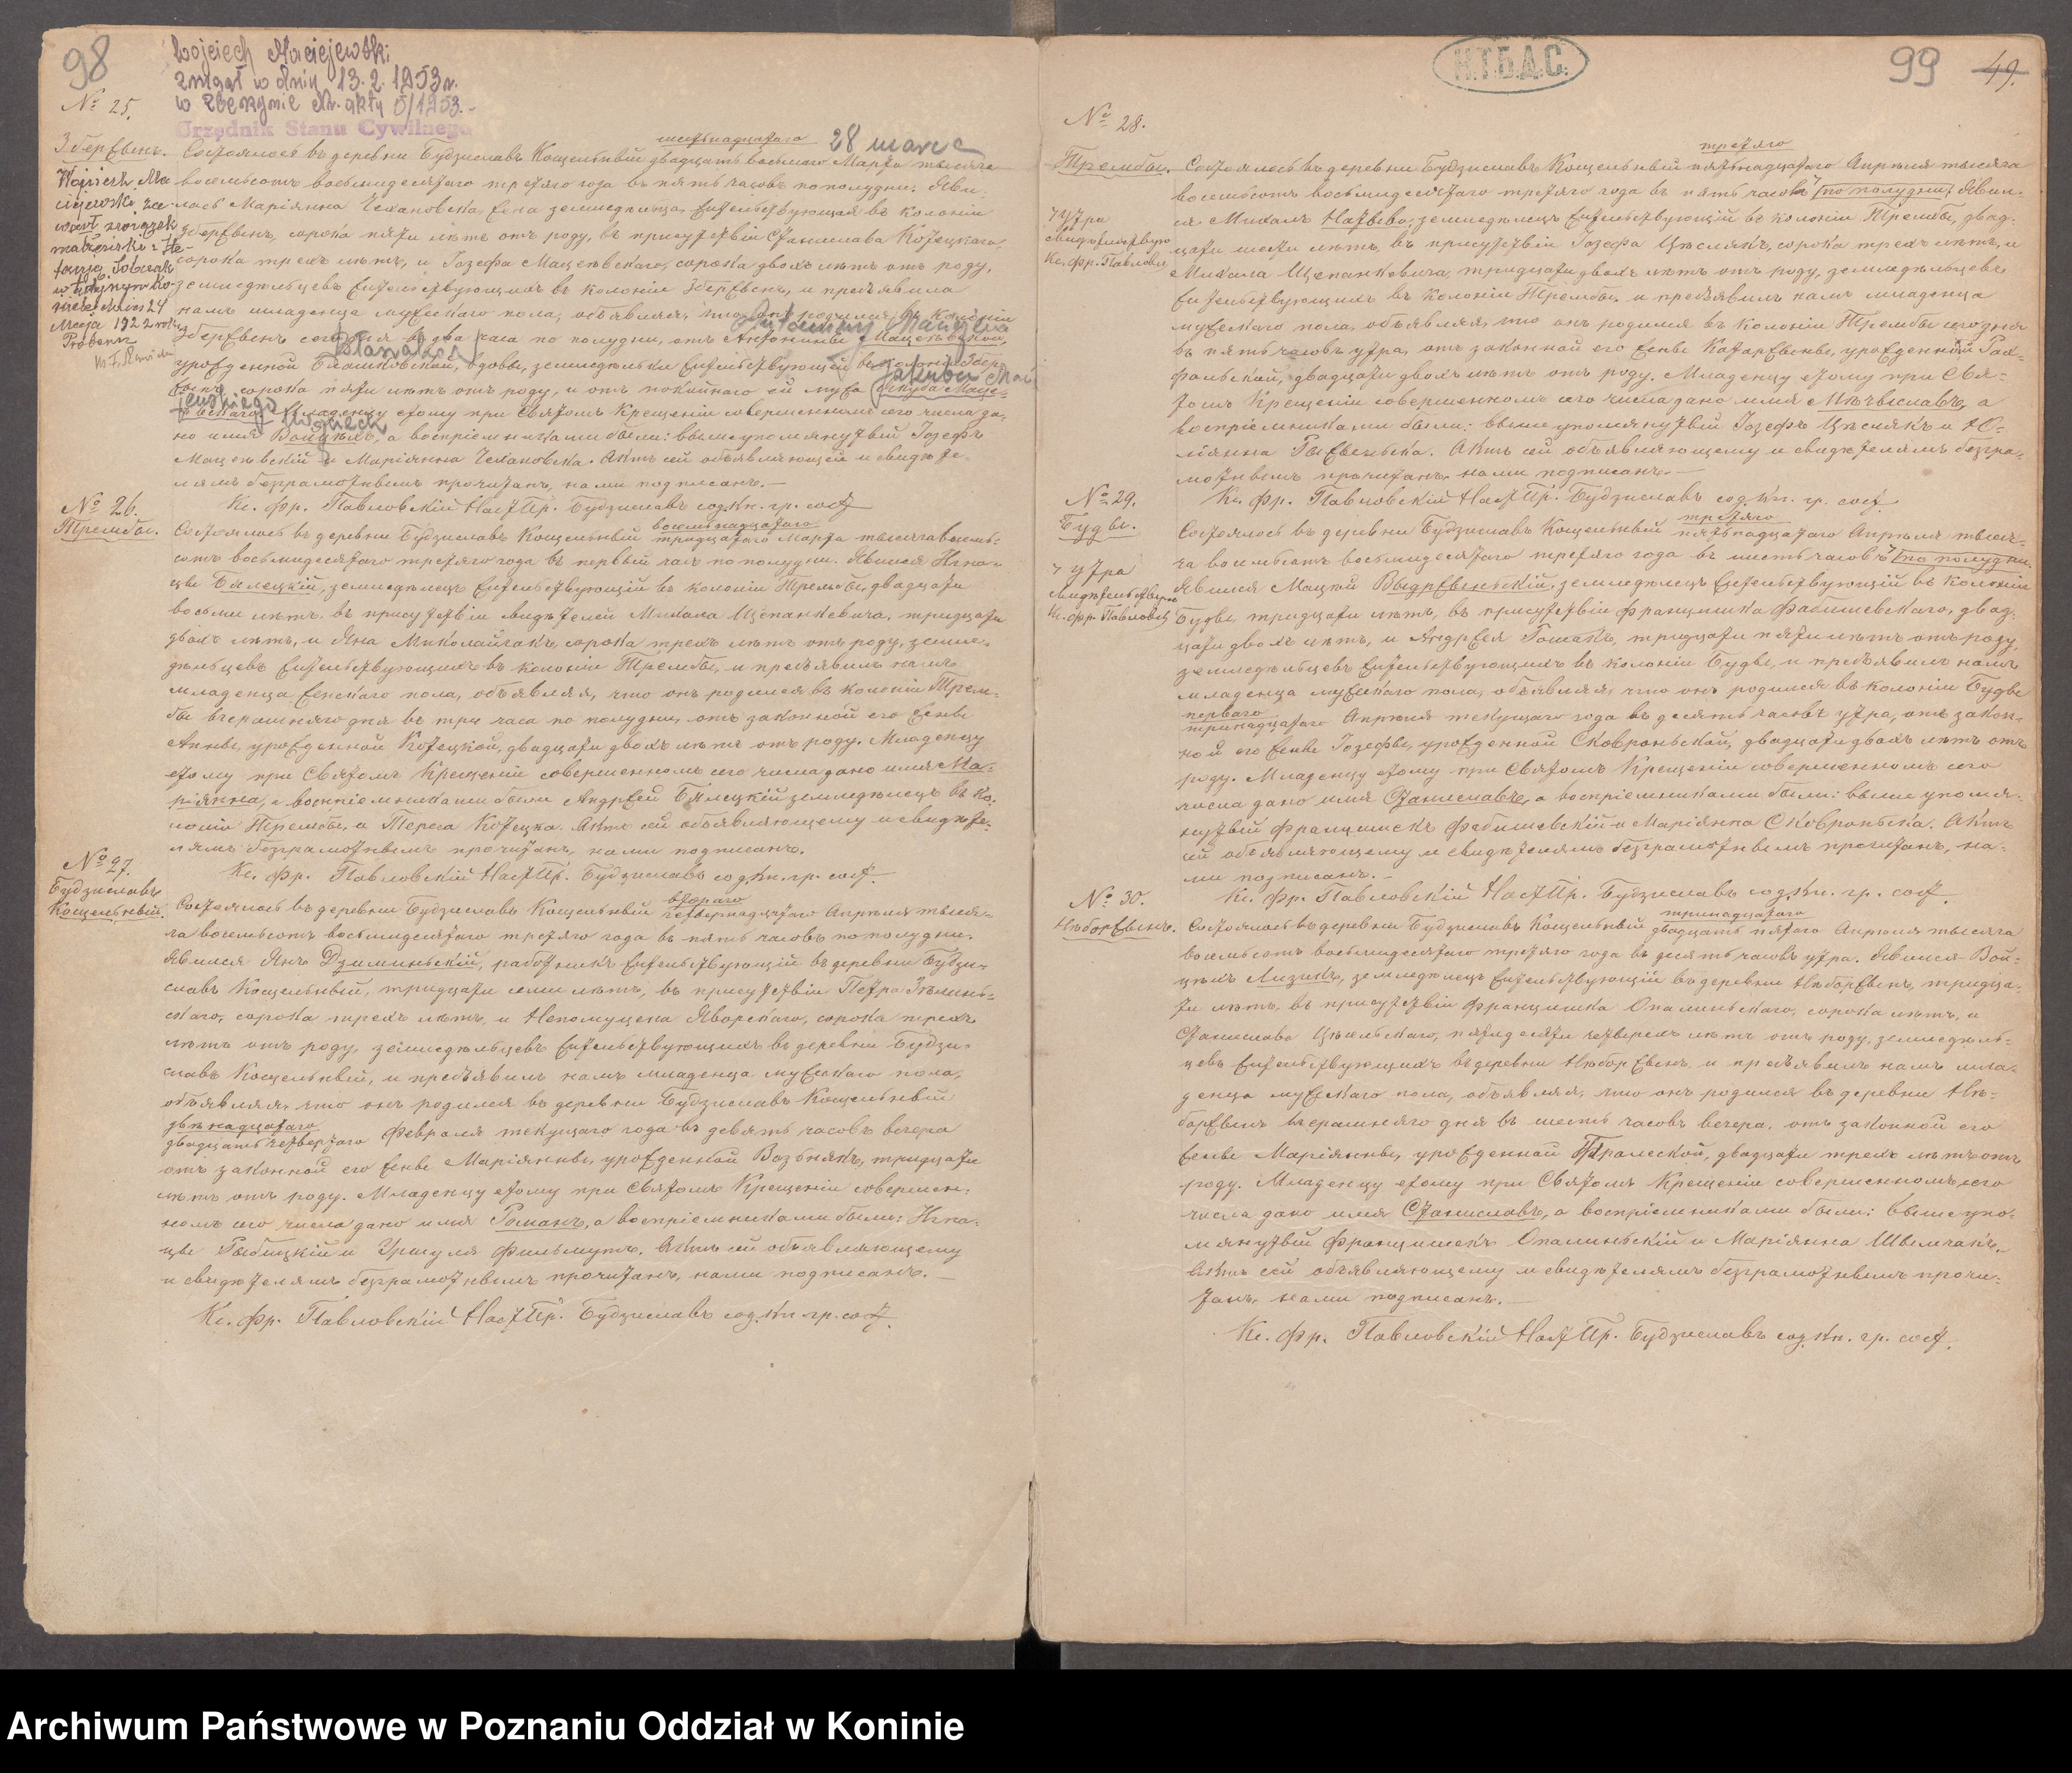 98
Wojciech Maciejewski
zmarł w dniu 13.2.1953 r.
w Zberzynie Nr. aktu 5/1953.-
Urzędnik Stanu Cywilnego
№ 25.
Збержынъ.
Wojciech Ma
ciejewski za
warł związek
małżeński z
Sobczak
dnia 24
Maja 1922 roku
Proboszcz
шестьнадцатаго 28 marca
Состоялось въ деревни Будзиславъ Косцельный двадцать восьмаго Марта тысяча
восемьсотъ восемьдесятаго третяго года въ пять часовъ пополудни. Яви-
лась Маріянна Чехановска, жена земледѣльца, жительствующая въ колоніи
Збержынъ, сорока пяти лѣтъ отъ роду, въ присутствіи Станислава Котецкаго
сорока трехъ лѣтъ, и Іозефа Мацеевскаго, сорока двохъ лѣтъ отъ роду,
земледѣльцевъ жительствующихъ въ колоніи Збержынъ, и предъявила
намъ младенца мужескаго пола, объявляя, что онъ родился въ колоніи
Antoniny Maciejew
Збержынъ сего дня въ два часа по полудни, отъ Антонины Мацеевской,
урожденной Блашковской, вдовы, земледѣльки жительствующей въ колоніи Збер-
Jakuba Mac
жынъ, сорока пяти лѣтъ отъ роду, и отъ покойнаго ей мужа Якуба Маце-
jewskiego
евскаго. Младенцу этому при Святомъ Крещеніи совершенномъ сего числа да-
Wojciech
но имя Войцѣхъ, а воспріемниками были: вышеупомянутый Іозефъ
Мацеевскій и Маріянна Чехановска. Актъ сей объявляющей и свидѣте-
лямъ безграмотнымъ прочитанъ, нами подписанъ.—
Кс. Фр. Павловскій Наст Пр. Будзиславъ сод. кн. гр. сост.
№ 26.
Трембы.
восемьнадцатаго
Состоялось въ деревни Будзиславъ Косцельный тридцатаго Марта тысяча восемь-
сотъ восемьдесятаго третяго года въ первый часъ по полудни. Явился Игна-
цы Бялецкій, земледѣлецъ жительствующій въ колоніи Трембы, двадцати
восьми лѣтъ, въ присутствіи свидѣтелей Михала Щепанкевича, тридцати
двохъ лѣтъ, и Яна Миколайчакъ, сорока трехъ лѣтъ отъ роду, земле-
дѣльцевъ жительствующихъ въ колоніи Трембы, и предъявилъ намъ
младенца женскаго пола, объявляя, что онъ родился въ колоніи Трем-
бы вчерашняго дня въ три часа по полудни, отъ законной его жены
Анны, урожденной Котецкой, двадцати двохъ лѣтъ отъ роду. Младенцу
этому при Святомъ Крещеніи совершенномъ сего числа дано имя Ма-
ріянна, а воспріемниками были Андржей Бялецкій земледѣлецъ въ ко-
лоніи Трембы, и Тереса Котецка. Актъ сей объявляющему и свидѣте-
лямъ безграмотнымъ прочитанъ, нами подписанъ.
Кс. Фр. Павловскій Наст Пр. Будзиславъ сод. кн. гр. сост.
№ 27.
Будзиславъ
Косцельный.
втораго
Состоялось въ деревни Будзиславъ Косцельный четвернадцатаго Апрѣля тыся-
ча восемьсотъ восемьдесятаго третяго года въ пять часовъ пополудни.
Явился Янъ Дзиминьскій, работникъ жительствующій въ деревни Будзи-
славъ Косцельный, тридцати семи лѣтъ, въ присутствіи Петра Зѣлинь-
скаго, сорока трехъ лѣтъ, и Непомуцена Яворскаго, сорока трехъ
лѣтъ отъ роду, земледѣльцевъ жительствующихъ въ деревни Будзи-
славъ Косцельный, и предъявилъ намъ младенца мужескаго пола,
объявляя, что онъ родился въ деревни Будзиславъ Косцельный
двѣнадцатаго
двадцать четвертаго Февраля текущаго года въ девять часовъ вечера
отъ законной его жены Маріянны, урожденной Возьнякъ, тридцати
лѣтъ отъ роду. Младенцу этому при Святомъ Крещеніи совершен-
номъ сего числа дано имя Романъ, а воспріемниками были: Игна-
цы Рыбицкій и Уршуля Фильмутъ. Актъ сей объявляющему
и свидѣтелямъ безграмотнымъ прочитанъ, нами подписанъ.—
Кс. Фр. Павловскій Наст Пр. Будзиславъ сод. кн. гр. сост.
Н.Т.Б.Д.С.
99 49.
№ 28.
Трембы.
утра
свидѣтельствую
Кс. Фр. Павловскій
третяго
Состоялось въ деревни Будзиславъ Косцельный пятьнадцатаго Апрѣля тысяча
восемьсотъ восемьдесятаго третяго года въ пять часовъ по полудни. Явил-
ся Михалъ Натыво, земледѣлецъ жительствующій въ колоніи Трембы, двад-
цати шести лѣтъ, въ присутствіи Іозефа Цѣслякъ, сорока трехъ лѣтъ, и
Михала Щепанкевича, тридцати двохъ лѣтъ отъ роду, земледѣльцевъ
жительствующихъ въ колоніи Трембы, и предъявилъ намъ младенца
мужескаго пола, объявляя, что онъ родился въ колоніи Трембы сего дня
въ пять часовъ утра, отъ законной его жены Катаржыны, урожденной Рах-
фальской, двадцати двохъ лѣтъ отъ роду. Младенцу этому при Свя-
томъ Крещеніи совершенномъ сего числа дано имя Мѣчыславъ, а
воспріемниками были: выше упомянутый Іозефъ Цѣслякъ и Ю-
ліянна Актъ сей объявляющему и свидѣтелямъ безгра-
мотнымъ прочитанъ, нами подписанъ.—
Кс. Фр. Павловскій Наст Пр. Будзиславъ сод. кн. гр. сост.
№ 29.
Буды.
утра
свидѣтельствую
Кс. Фр. Павловскій
третяго
Состоялось въ деревни Будзиславъ Косцельный пятьнадцатаго Апрѣля тыся-
ча восемьсотъ восемьдесятаго третяго года въ шесть часовъ по полудни.
Явился Мацѣй Выдржыньскій, земледѣлецъ жительствующій въ колоніи
Буды, тридцати лѣтъ, въ присутствіи Францишка Фабишевскаго, двад-
цати двохъ лѣтъ, и Андржея Томакъ, тридцати пяти лѣтъ отъ роду,
земледѣльцевъ жительствующихъ въ колоніи Буды, и предъявилъ намъ
младенца мужескаго пола, объявляя, что онъ родился въ колоніи Буды
перваго
тринадцатаго Апрѣля текущаго года въ десять часовъ утра, отъ закон-
ной его жены Іозефы, урожденной Сковроньской, двадцати двохъ лѣтъ отъ
роду. Младенцу этому при Святомъ Крещеніи совершенномъ сего
числа дано имя Станиславъ, а воспріемниками были: выше упомя-
нутый Францишекъ Фабишевскій и Маріянна Сковроньска. Актъ
сей объявляющему и свидѣтелямъ безграмотнымъ прочитанъ, на-
ми подписанъ.—
Кс. Фр. Павловскій Наст Пр. Будзиславъ сод. кн. гр. сост.
№ 30.
Нѣборжынъ.
тринадцатаго
Состоялось въ деревни Будзиславъ Косцельный двадцать пятаго Апрѣля тысяча
восемьсотъ восемьдесятаго третяго года въ десять часовъ утра. Явился Вой-
цѣхъ Лизикъ, земледѣлецъ жительствующій въ деревни Нѣборжынъ, тридца-
ти лѣтъ, въ присутствіи Францишка Опалиньскаго, сорока лѣтъ, и
Станислава Цѣсельскаго, пятидесяти четверехъ лѣтъ отъ роду, земледѣль-
цевъ жительствующихъ въ деревни Нѣборжынъ, и предъявилъ намъ мла-
денца мужескаго пола, объявляя, что онъ родился въ деревни Нѣ-
боржынъ вчерашняго дня въ шесть часовъ вечера, отъ законной его
жены Маріянны, урожденной двадцати трехъ лѣтъ отъ
роду. Младенцу этому при Святомъ Крещеніи совершенномъ сего
числа дано имя Станиславъ, а воспріемниками были: выше упо-
мянутый Францишекъ Опалиньскій и Маріянна Шымчакъ.
Актъ сей объявляющему и свидѣтелямъ безграмотнымъ прочи-
танъ, нами подписанъ.—
Кс. Фр. Павловскій Наст Пр. Будзиславъ сод. кн. гр. сост.
Archiwum Państwowe w Poznaniu Oddział w Koninie